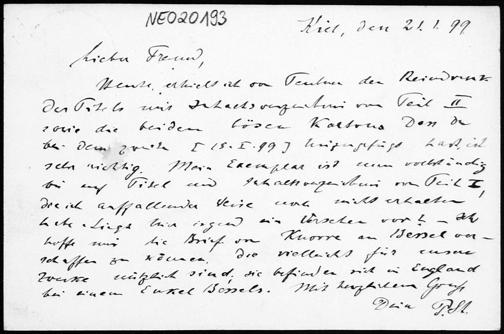 NE020193
Kiel, den 21.1.99
Lieber Freund,
Heute erhielt ich von Teubner den Reindruck
des Titels mit Inhaltsverzeichnis von Teil II
sowie die beiden bösen Kartons. Dass Du
bei dem zweiten [15-I-99] hinzugefügt hast, ist
sehr richtig. Mein Exemplar ist nun vollständig
bis auf Titel und Inhaltsverzeichnis von Teil I,
die ich auffallender Weise noch nicht erhalten
habe. Liegt hier irgend ein Versehen vor? - Ich
hoffe mir die Briefe von Knorre an Bessel ver-
schaffen zu können, die vielleicht für unsere
Zwecke nützlich sind; sie befinden sich in England
bei einem Enkel Bessels. Mit herzlichem Gruss
Dein P. St.